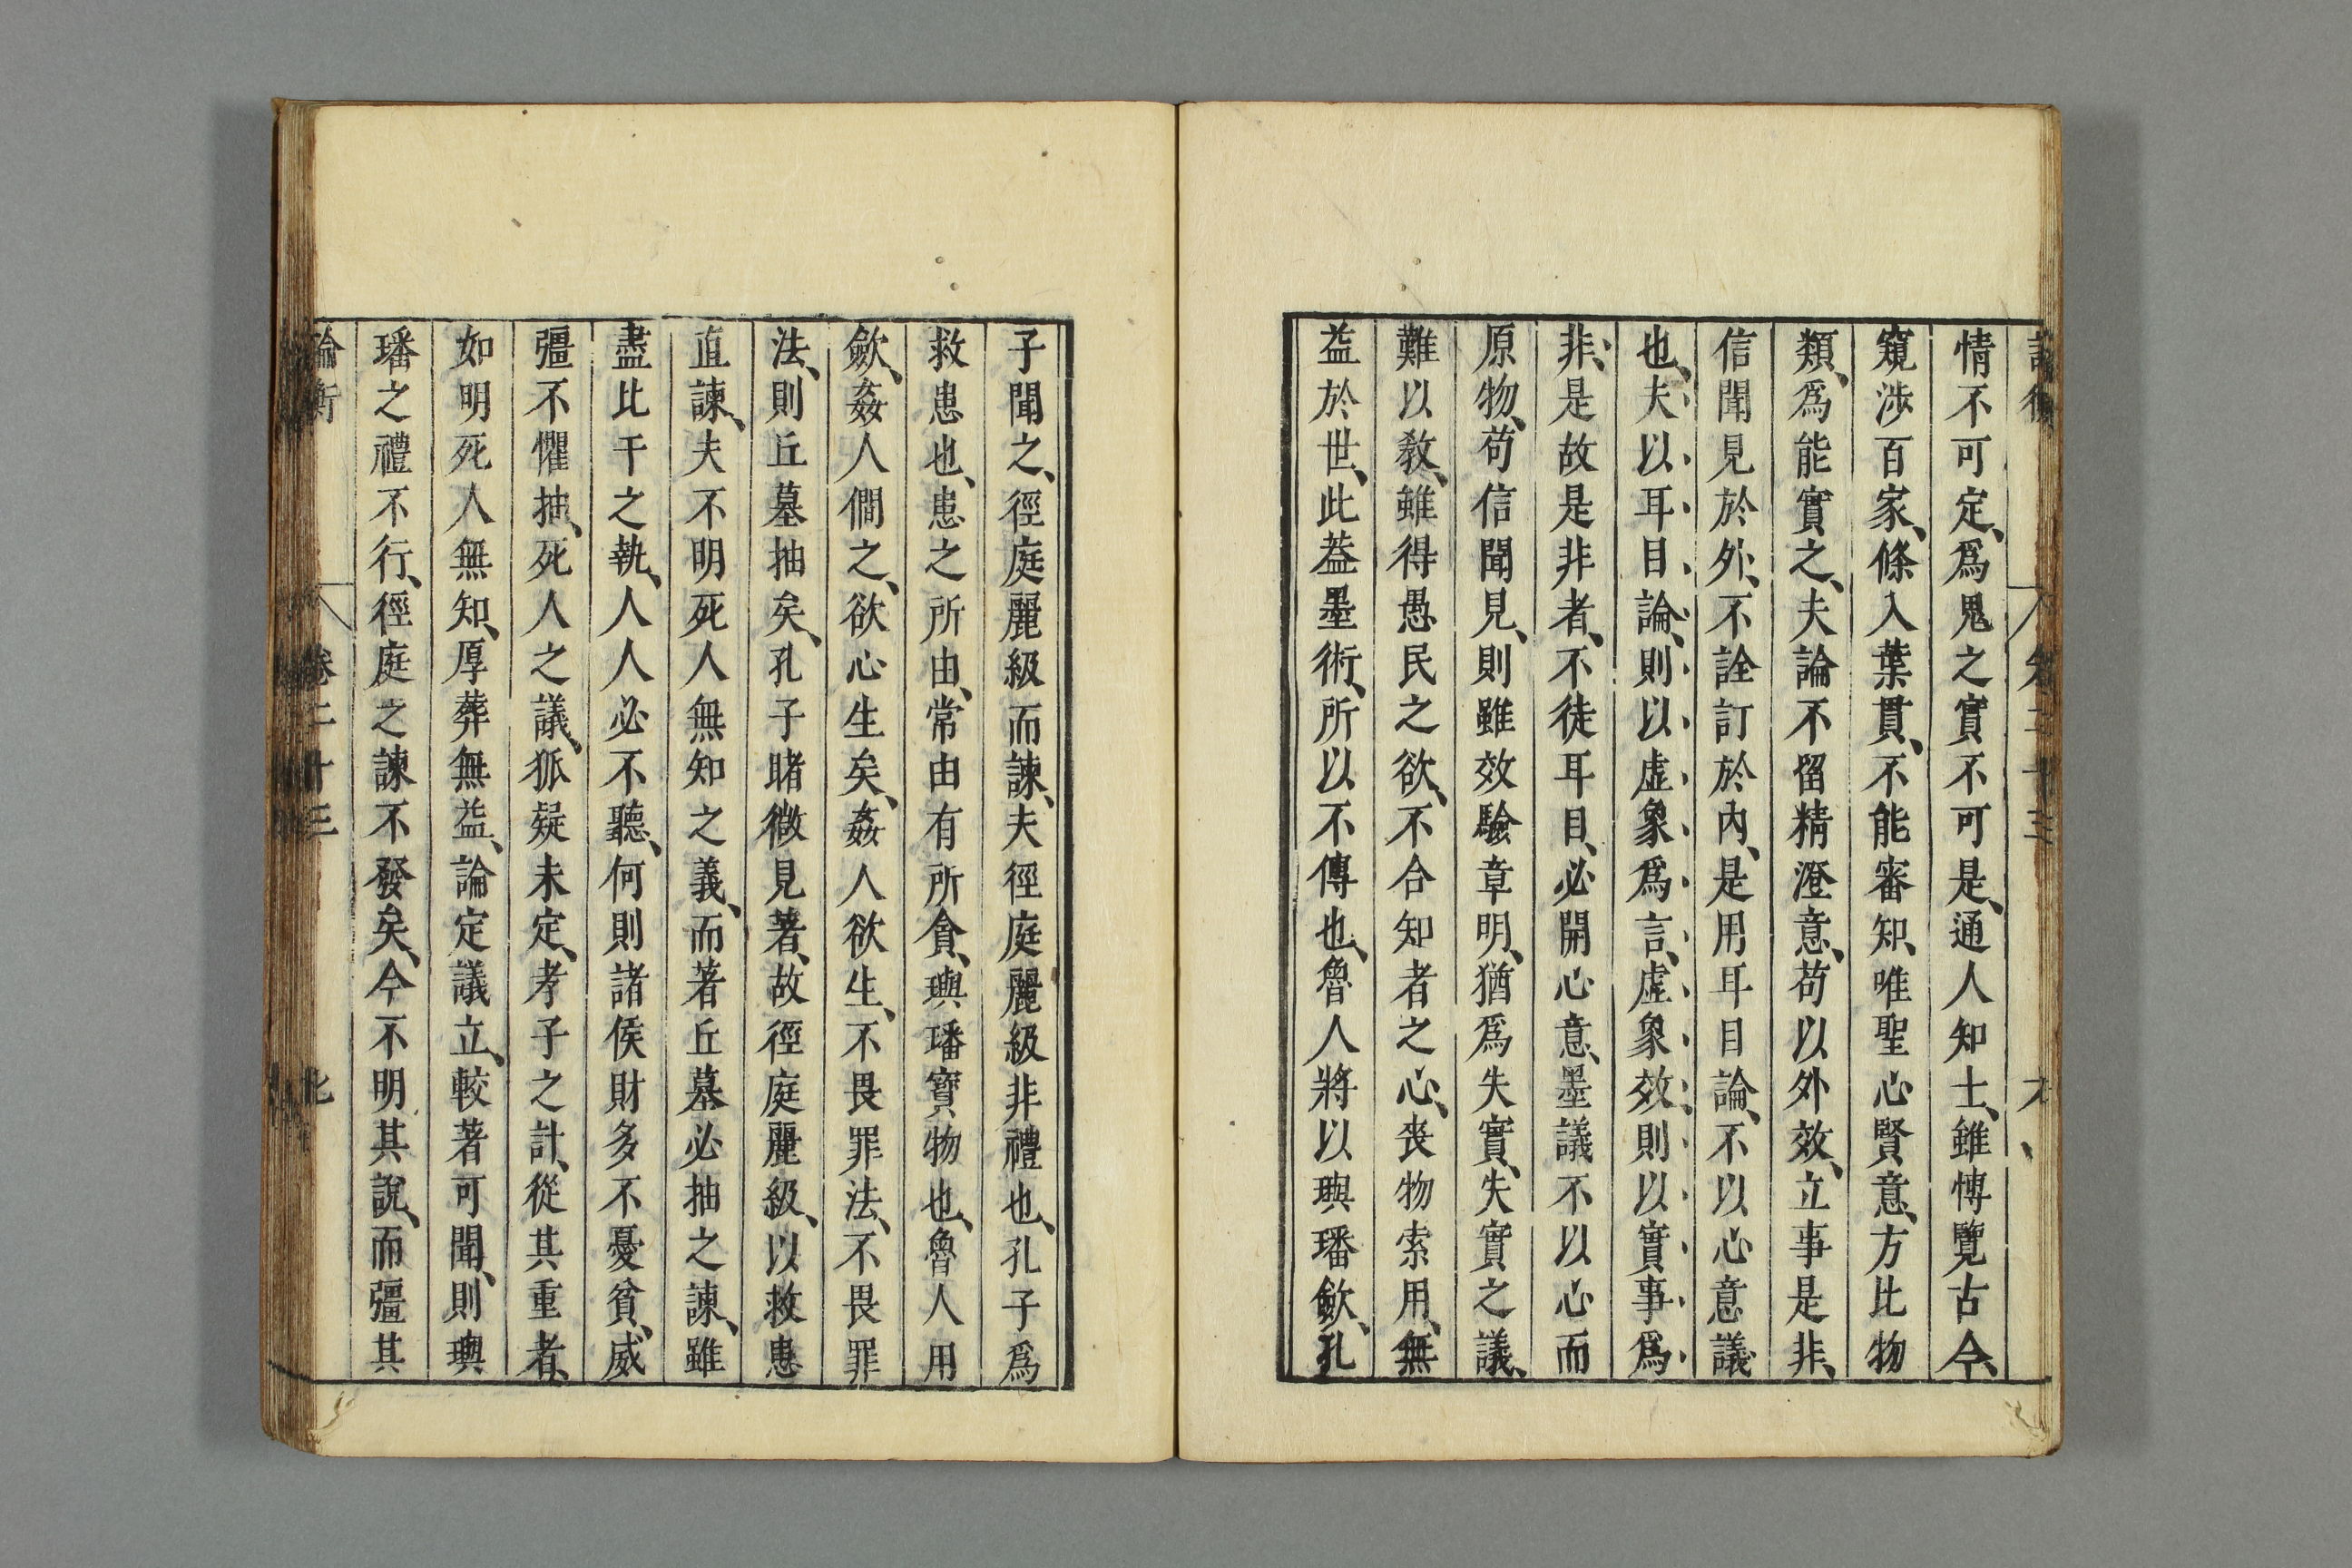 情不可定、爲鬼之實不可是、通人知士、雖博覽古今、
窺涉百家、條入葉貫、不能審知、唯聖心賢意、方比物
類、爲能實之、夫論不留精澄意、苟以外效、立事是非、
信聞見於外、不詮訂於內、是用耳目論、不以心意議
也、夫以耳目論、則以虛象爲言、虛象效、則以實事爲
非、是故是非者、不徒耳目、必開心意、墨議不以心而
原物、苟信聞見、則雖效驗章明、猶爲失實、失實之議、
難以敎、雖得愚民之欲、不合知者之心、喪物索用、無
益於世、此葢墨術、所以不傳也、魯人將以璵璠歛、孔
子聞之、徑庭麗級而諫、夫徑庭麗級非禮也、孔子爲
救患也、患之所由、常由有所貪、璵璠寶物也、魯人用
歛、姦人僩之、欲心生矣、姦人欲生、不畏罪法、不畏罪
法、則丘墓抽矣、孔子睹微見著、故徑庭麗級、以救患
直諫、夫不明死人無知之義、而著丘墓必抽之諫、雖
盡比干之執、人人必不聽、何則諸侯財多不憂貧、威
彊不懼抽、死人之議、狐疑未定、孝子之計、從其重者、
如明死人無知、厚葬無益、論定議立、較著可聞、則璵
璠之禮不行、徑庭之諫不發矣、今不明其說、而彊其
論衡 卷二十三